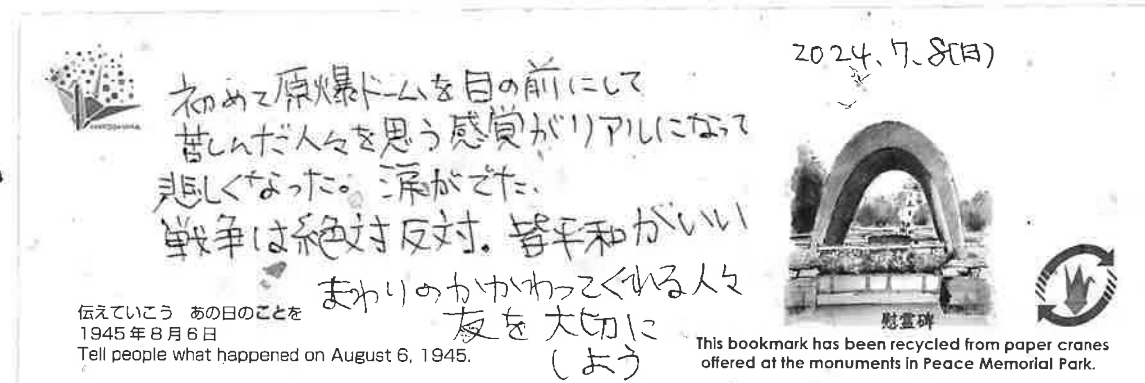 2024.7.8(日)
初めて原爆ドームを目の前にして
苦しんだ人々を思う感覚がリアルになって
悲しくなった。涙がでた、
戦争は絶対反対。皆平和がいい
まわりのかかわってくれる人々
友を大切に
しよう
伝えていこう あの日のことを
1945年8月6日
Tell people what happened on August 6, 1945.
慰霊碑
This bookmark has been recycled from paper cranes
offered at the monuments in Peace Memorial Park.